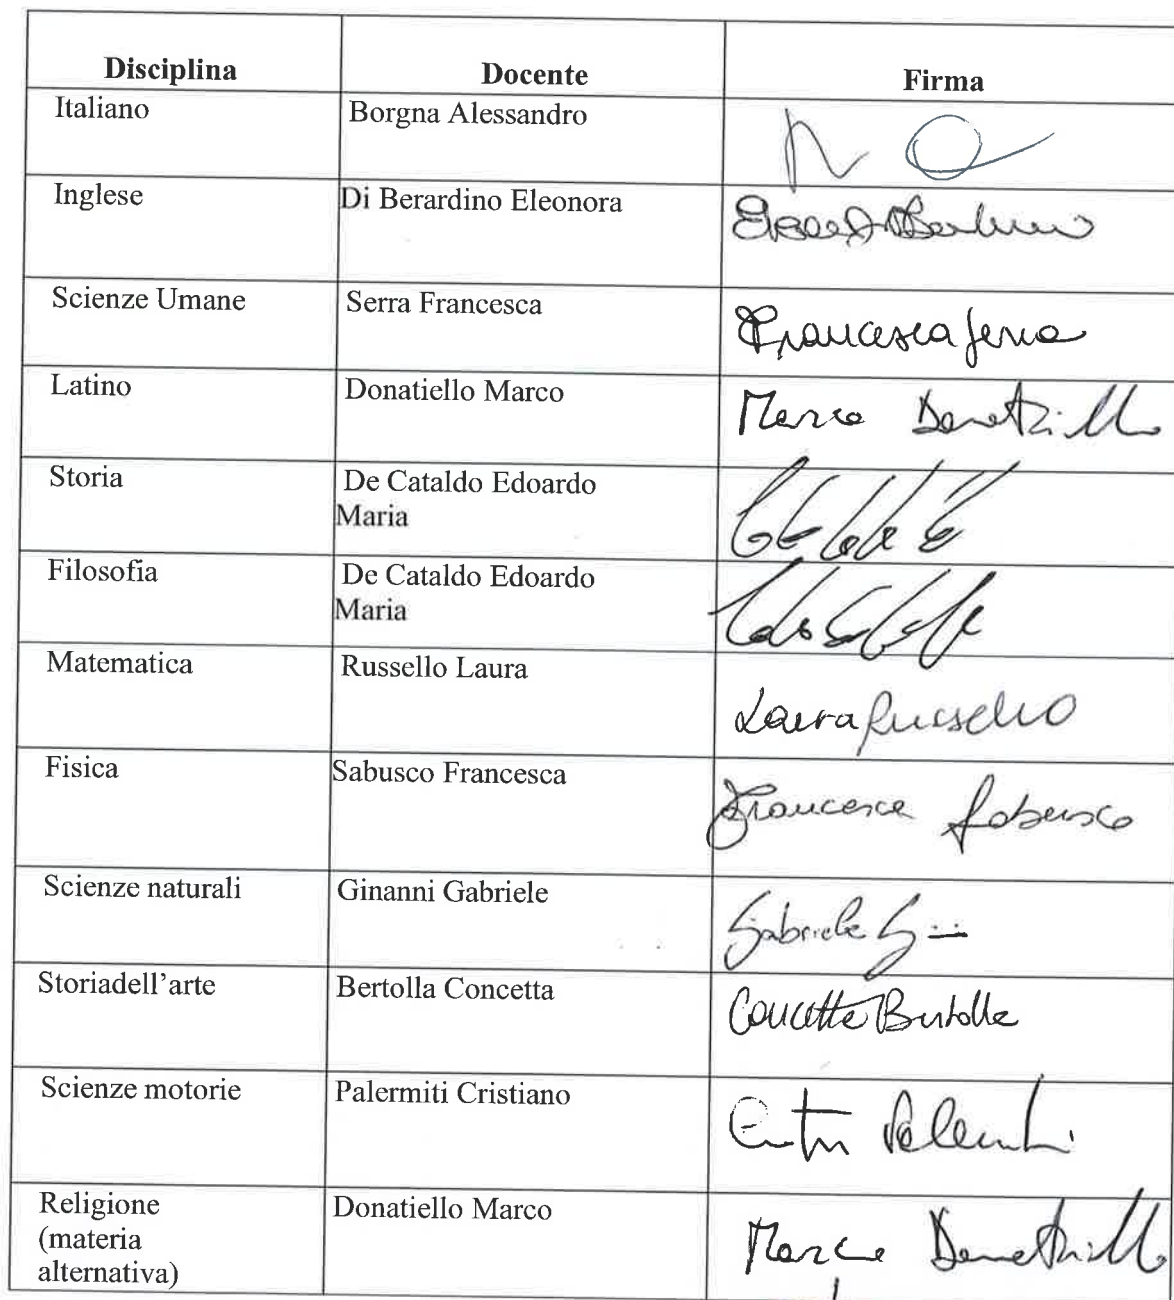 Disciplina Docente Firma
Italiano Borgna Alessandro
Inglese Di Berardino Eleonora
Scienze Umane Serra Francesca Francesca Serra
Latino Donatiello Marco Marco Donatiello
Storia De Cataldo Edoardo
Maria
Filosofia De Cataldo Edoardo
Maria
Matematica Russello Laura Laura Russello
Fisica Sabusco Francesca Francesca Sabusco
Scienze naturali Ginanni Gabriele Gabriele
Storiadell’arte Bertolla Concetta Concetta Bertolla
Scienze motorie Palermiti Cristiano
Religione Donatiello Marco Marco Donatiello
(materia
alternativa)